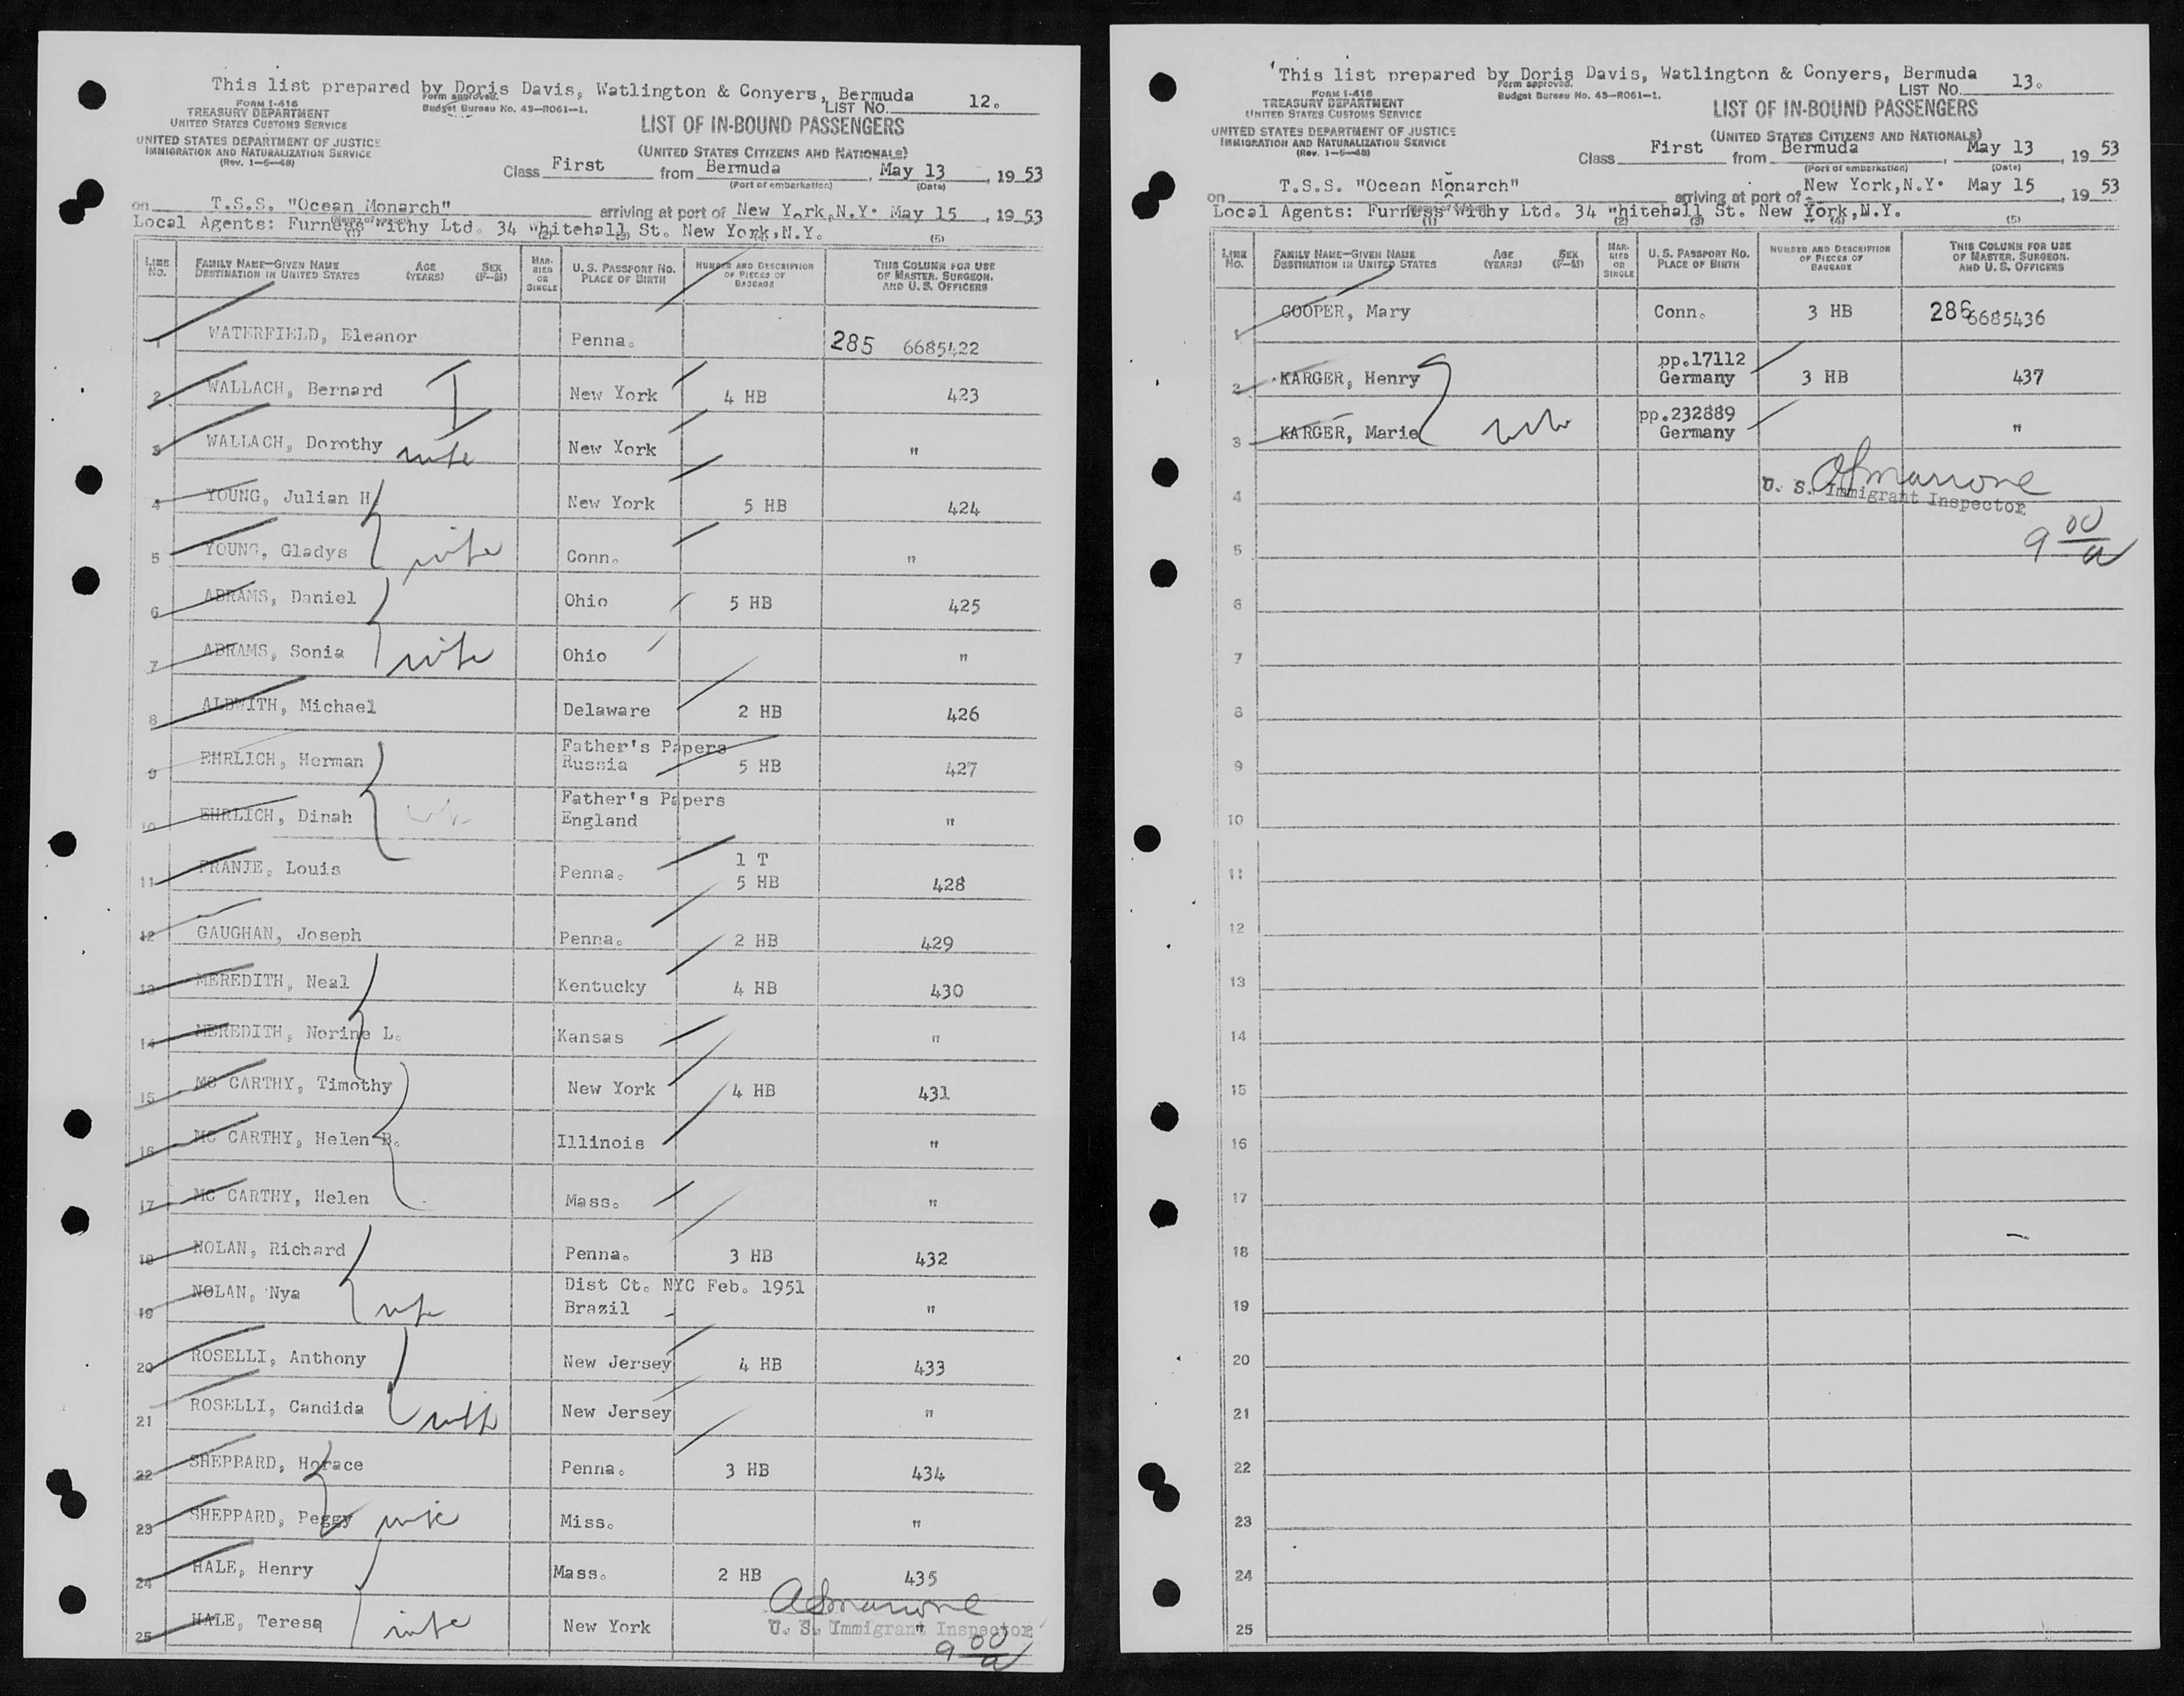 This list prepared by Doris Davis, Watlington & Conyers, Bermuda
Form approved.
Budget Bureau No. 43—R061—1.
LIST NO. 12.
FORM I-416
TREASURY DEPARTMENT
UNITED STATES CUSTOMS SERVICE
UNITED STATES DEPARTMENT OF JUSTICE
IMMIGRATION AND NATURALIZATION SERVICE
(Rev. 1—5—48)
LIST OF IN-BOUND PASSENGERS
(UNITED STATES CITIZENS AND NATIONALS)
Class First from Bermuda, May 13, 19 53
(Port of embarkation) (Date)
on T.S.S. "Ocean Monarch" arriving at port of New York,N.Y. May 15, 19 53
(Name of vessel)
Local Agents: Furness Withy Ltd. 34 Whitehall St. New York,N.Y.
(1) (2) (3) (4) (5)
LINE NO. FAMILY NAME—GIVEN NAME DESTINATION IN UNITED STATES AGE (YEARS) SEX (F—M) MARRIED OR SINGLE U. S. PASSPORT NO. PLACE OF BIRTH NUMBER AND DESCRIPTION OF PIECES OF BAGGAGE THIS COLUMN FOR USE OF MASTER, SURGEON, AND U. S. OFFICERS
1 WATERFIELD, Eleanor Penna. 285 6685422
2 WALLACH, Bernard New York 4 HB 423
3 WALLACH, Dorothy wife New York "
4 YOUNG, Julian H New York 5 HB 424
5 YOUNG, Gladys wife Conn. "
6 ABRAMS, Daniel Ohio 5 HB 425
7 ABRAMS, Sonia wife Ohio "
8 Michael Delaware 2 HB 426
9 EHRLICH, Herman Father's Papers Russia 5 HB 427
10 EHRLICH, Dinah wife Father's Papers England "
11 Louis Penna. 1 T 5 HB 428
12 GAUGHAN, Joseph Penna. 2 HB 429
13 MEREDITH, Neal Kentucky 4 HB 430
14 MEREDITH, Norine L. Kansas "
15 MC CARTHY, Timothy New York 4 HB 431
16 MC CARTHY, Helen B. Illinois "
17 MC CARTHY, Helen Mass. "
18 NOLAN, Richard Penna. 3 HB 432
19 NOLAN, Nya wife Dist Ct. NYC Feb. 1951 Brazil "
20 ROSELLI, Anthony New Jersey 4 HB 433
21 ROSELLI, Candida wife New Jersey "
22 SHEPPARD, Horace Penna. 3 HB 434
23 SHEPPARD, Peggy wife Miss. "
24 HALE, Henry Mass. 2 HB 435
25 HALE, Teresa wife New York "
U. S. Immigrant Inspector
9 00 a
This list prepared by Doris Davis, Watlington & Conyers, Bermuda
Form approved.
Budget Bureau No. 43—R061—1.
LIST NO. 13.
FORM I-416
TREASURY DEPARTMENT
UNITED STATES CUSTOMS SERVICE
UNITED STATES DEPARTMENT OF JUSTICE
IMMIGRATION AND NATURALIZATION SERVICE
(Rev. 1—5—48)
LIST OF IN-BOUND PASSENGERS
(UNITED STATES CITIZENS AND NATIONALS)
Class First from Bermuda, May 13, 19 53
(Port of embarkation) (Date)
on T.S.S. "Ocean Monarch" arriving at port of New York,N.Y. May 15, 19 53
(Name of vessel)
Local Agents: Furness Withy Ltd. 34 Whitehall St. New York,N.Y.
(1) (2) (3) (4) (5)
LINE NO. FAMILY NAME—GIVEN NAME DESTINATION IN UNITED STATES AGE (YEARS) SEX (F—M) MARRIED OR SINGLE U. S. PASSPORT NO. PLACE OF BIRTH NUMBER AND DESCRIPTION OF PIECES OF BAGGAGE THIS COLUMN FOR USE OF MASTER, SURGEON, AND U. S. OFFICERS
1 COOPER, Mary Conn. 3 HB 286 6685436
2 KARGER, Henry pp.17112 Germany 3 HB 437
3 KARGER, Marie wife pp.232889 Germany "
4
U. S. Immigrant Inspector
9 00 a
5
6
7
8
9
10
11
12
13
14
15
16
17
18
19
20
21
22
23
24
25